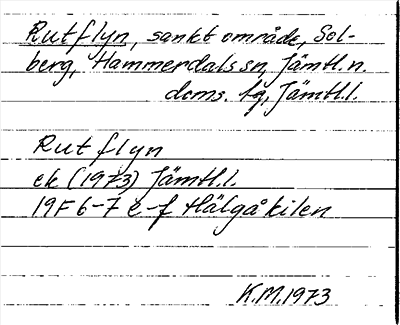 Rutflyn, sankt område, Sol-
berg, Hammerdals sn, Jämtl.n.
doms. tg, Jämtl.l.
Rutflyn
ek (1973) Jämtl.l.
19F 6-7 e-f Hälgåkilen
K.M.1973